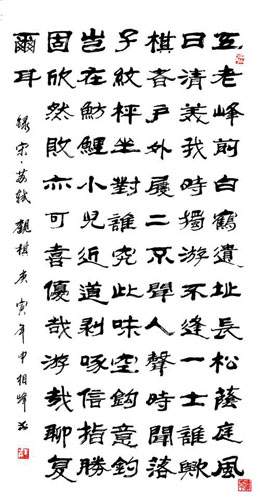 五老峰前白鶴遺址長松蔭庭風
日清美我時獨游不逢一士誰歟
棋者戶外屨二不聞人聲時聞落
子紋枰坐對誰究此味空鉤意釣
豈在魴鯉小兒近道剝啄信指勝
固欣然敗亦可喜優哉游哉聊复
爾耳
録宋·蘇軾觀棋庚寅年申相峰書